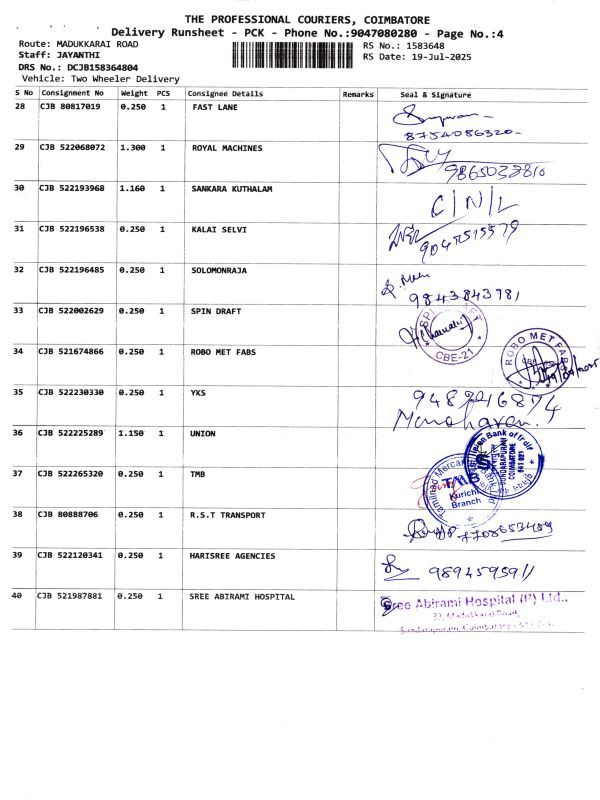 THE PROFESSIONAL COURIERS, COIMBATORE
Delivery Runsheet - PCK - Phone No.:9047080280 - Page No.:4
Route: MADUKKARAI ROAD
RS No.: 1583648
Staff: JAYANTHI
RS Date: 19-Jul-2025
DRS No.: DCJB158364804
Vehicle: Two Wheeler Delivery
S No Consignment No Weight PCS Consignee Details Remarks Seal & Signature
28 CJB 80817019 0.250 1 FAST LANE
8754086320
29 CJB 522068072 1.300 1 ROYAL MACHINES
9865038810
30 CJB 522193968 1.160 1 SANKARA KUTHALAM
C/N/L
31 CJB 522196538 0.250 1 KALAI SELVI
32 CJB 522196485 0.250 1 SOLOMONRAJA
9843843781
33 CJB 522002629 0.250 1 SPIN DRAFT
CBE-21
34 CJB 521674866 0.250 1 ROBO MET FABS
ROBO MET FABS
35 CJB 522230330 0.250 1 YKS
Manoharan.
36 CJB 522225289 1.150 1 UNION
SUNDARAPURAM
COIMBATORE
641 021
37 CJB 522265320 0.250 1 TMB
TMB
Kurichi
Branch
38 CJB 80888706 0.250 1 R.S.T TRANSPORT
7708653489
39 CJB 522120341 0.250 1 HARISREE AGENCIES
9894595911
40 CJB 521987881 0.250 1 SREE ABIRAMI HOSPITAL
Sree Abirami Hospital (P) Ltd.,
33, Madukkarai Road,
Sundarapuram, Coimbatore